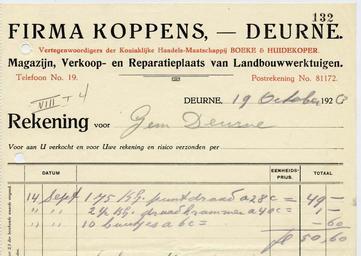 132
FIRMA KOPPENS, — DEURNE.
Vertegenwoordigers der Koninklijke Handels-Maatschappij BOEKE & HUIDEKOPER.
Magazijn, Verkoop- en Reparatieplaats van Landbouwwerktuigen.
Telefoon No. 19. Postrekening No. 81172.
VIII - 4
DEURNE, 19 October 192
Rekening voor Gem Deurne
Voor aan U verkocht en voor Uwe rekening en risico verzonden per
DATUM EENHEIDS-PRIJS. TOTAAL
14 Sept 175 Kg. puntdraad a 28 c = 49 —
" " 2½ Kg. draadkrammen a 40 c = 1 —
" " 10 a 6 c = — 60
fl 50,60